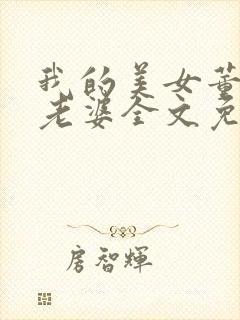 我的美女董
老婆全文免
房智輝